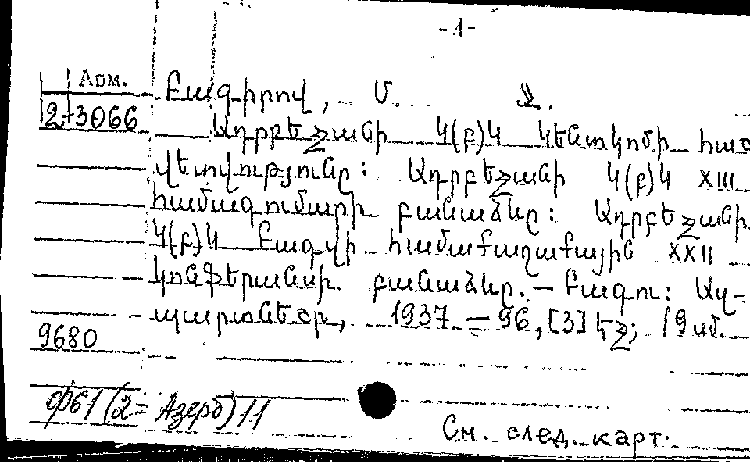 -1-
Арм.
2-3066
Բագիրով, Մ. Ջ.
Ադրբեջանի Կ(բ)Կ Կենտկոմի հաշ
վետվությունը: Ադրբեջանի Կ(բ)Կ XIII
համագումարի բանաձևը: Ադրբեջանի
Կ(բ)Կ Բագվի համաքաղաքային XXII
կոնֆերանսի. բանաձևը. — Բագու: Ազ-
պարտնեշր, 1937. — 96, [3] էջ; 19 սմ.
9680
ф61(2=Азерб)11
См. след. карт.